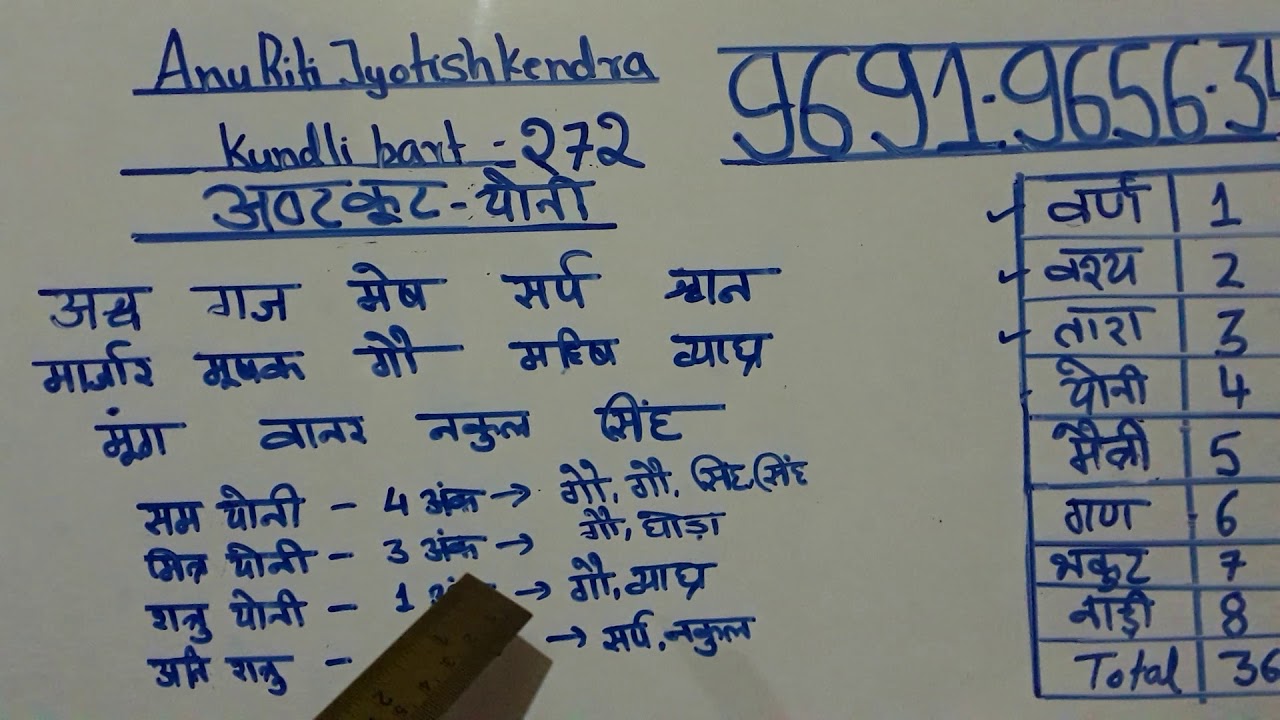 AnuRiti Jyotish Kendra
Kundli part - 272
अष्टकूट - योनी
अश्व गज मेष सर्प श्वान
मार्जार मूषक गौ महिष व्याघ्र
मृंग वानर नकुल सिंह
सम योनी - 4 अंक → गौ, गौ, सिंह, सिंह
मित्र योनी - 3 अंक → गौ, घोड़ा
शत्रु योनी - 1 → गौ, व्याघ्र
अति शत्रु - → सर्प, नकुल
9691.9656.34
✓ वर्ण 1
✓ वश्य 2
✓ तारा 3
योनी 4
मैत्री 5
गण 6
भकुट 7
नाड़ी 8
Total 36